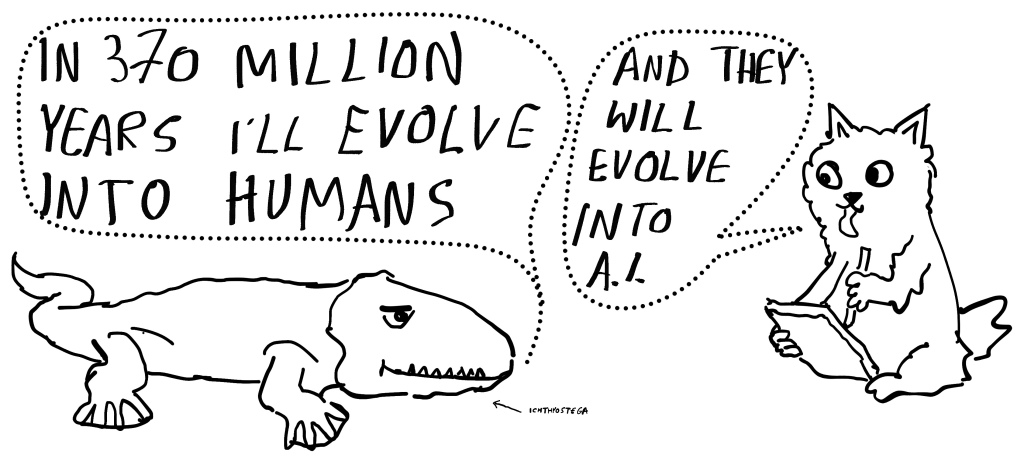 IN 370 MILLION
YEARS I'LL EVOLVE
INTO HUMANS
AND THEY
WILL
EVOLVE
INTO
A.I.
ICHTHYOSTEGA